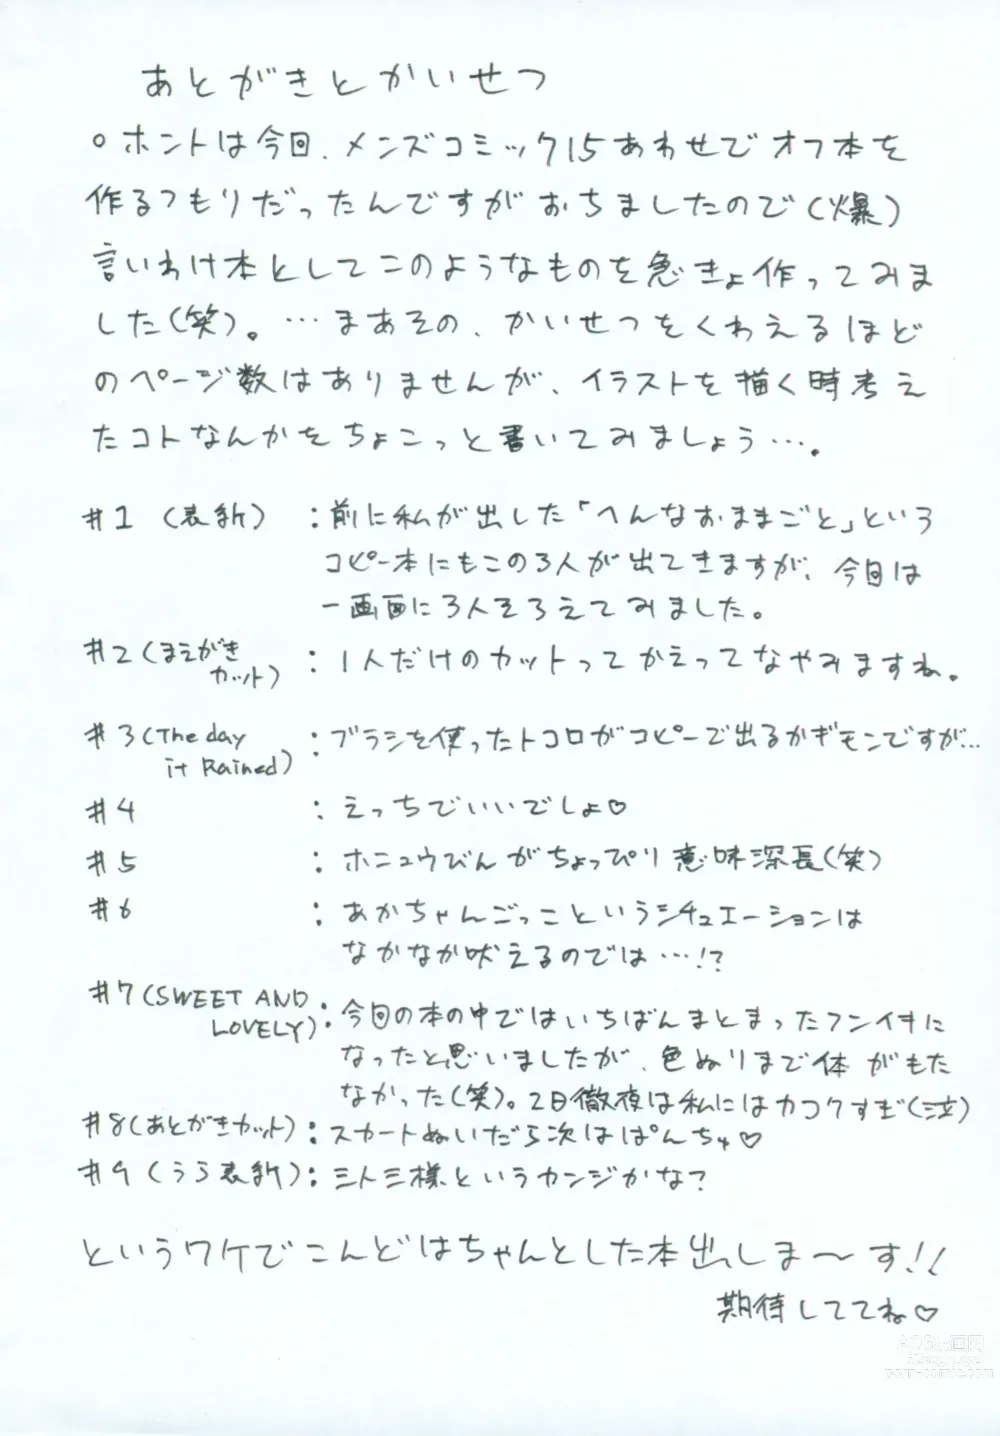 あとがきとかいせつ
○ホントは今回、メンズコミック15あわせでオフ本を
作るつもりだったんですがおちましたので(爆)
言いわけ本としてこのようなものを急きょ作ってみま
した(笑)。…まあその、かいせつをくわえるほど
のページ数はありませんが、イラストを描く時考え
たコトなんかをちょこっと書いてみましょう…。
#1 (表紙) : 前に私が出した「へんなおままごと」という
コピー本にもこの3人が出てきますが、今回は
一画面に3人そろえてみました。
#2(まえがきカット) : 1人だけのカットってかえってなやみますね。
#3(The day it Rained) : ブラシを使ったトコロがコピーで出るかギモンですが…
#4 : えっちでいいでしょ♡
#5 : ホニュウびんがちょっぴり意味深長(笑)
#6 : あかちゃんごっこというシチュエーションは
なかなか吠えるのでは…!?
#7(SWEET AND LOVELY) : 今回の本の中ではいちばんまとまったフンイキに
なったと思いましたが、色ぬりまで体がもた
なかった(笑)。2日徹夜は私にはカコクすぎ(泣)
#8(あとがきカット) : スカートぬいだら次はぱんちゅ♡
#9 (うら表紙) : 三ト三様というカンジかな?
というワケでこんどはちゃんとした本出しま〜す!!
期待しててね♡